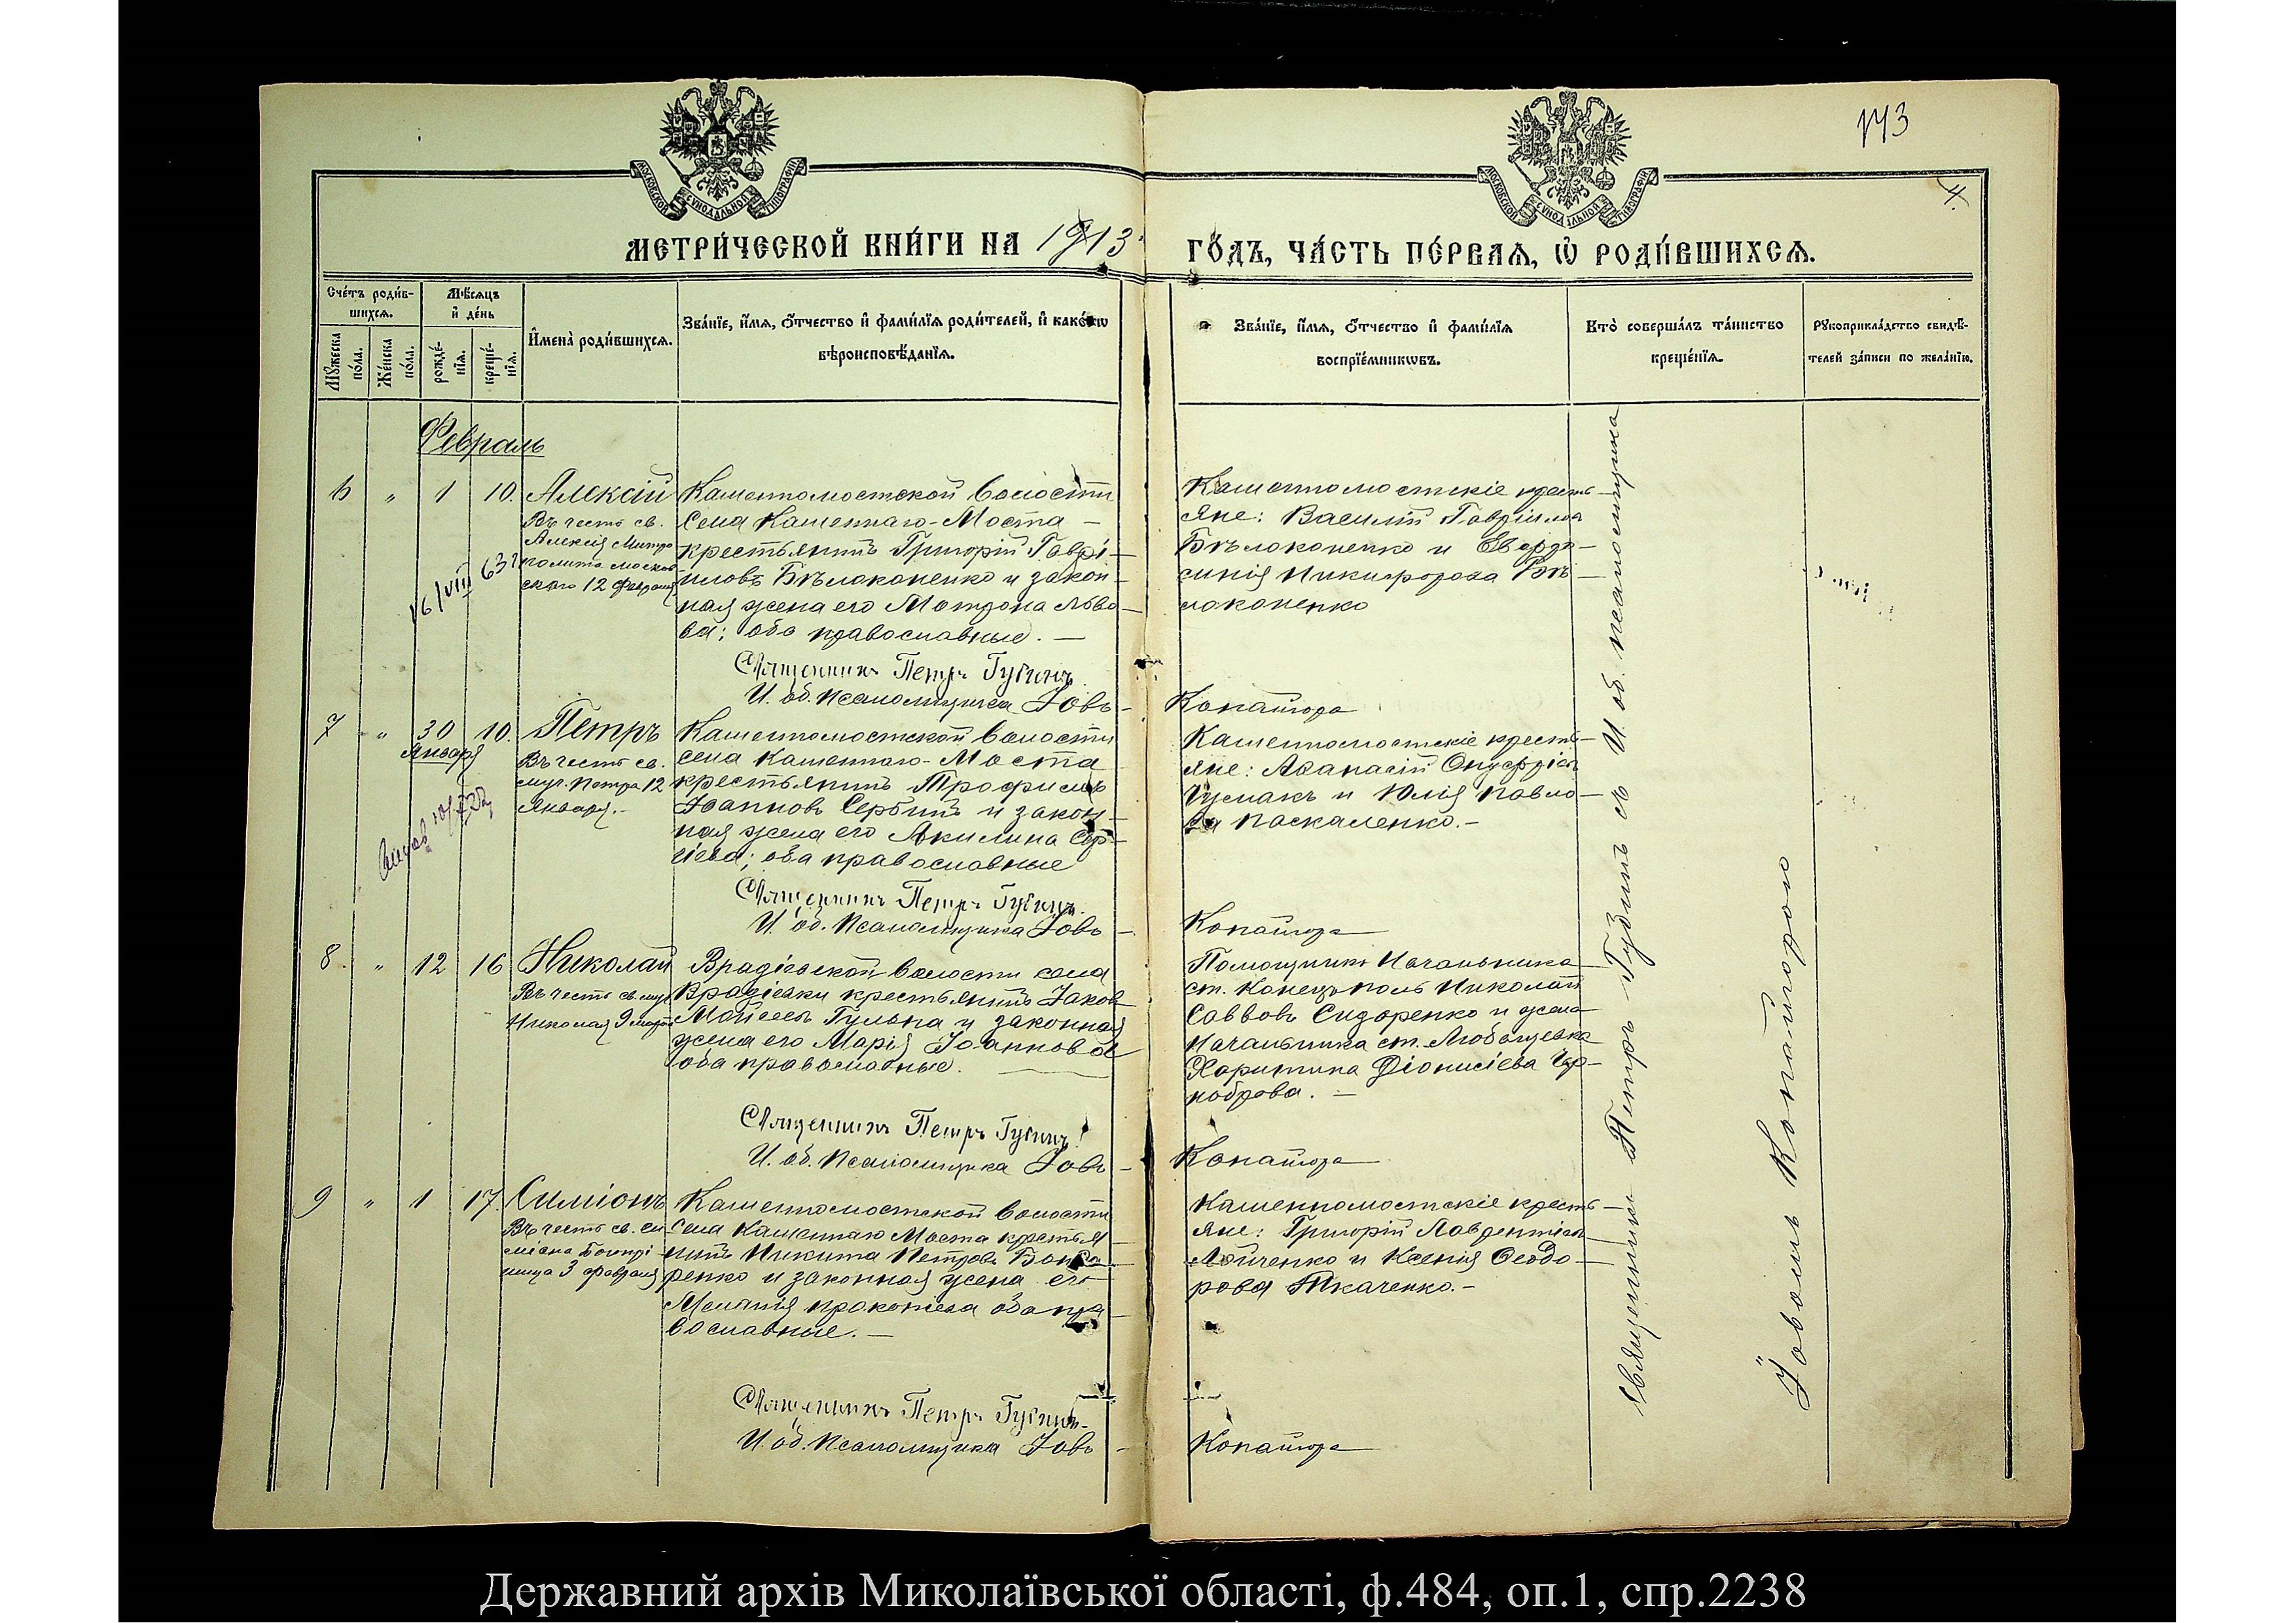 143
4.
МОСКОВСКОЙ СѴНОДАЛЬНОЙ ТИПОГРАФІИ
МОСКОВСКОЙ СѴНОДАЛЬНОЙ ТИПОГРАФІИ
МЕТРИ́ЧЕСКОЙ КНИ́ГИ НА 1913 ГО́ДЪ, ЧА́СТЬ ПЕ́РВАЯ, Ѡ҆ РОДИ́ВШИХСѦ.
Сче́тъ роди́в-
шихсѧ.
Мꙋ́жеска по́ла.
Же́нска по́ла.
Мѣ́сѧцъ и҆ де́нь
рожде́-нїѧ.
креще́-нїѧ.
И҆мена̀ роди́вшихсѧ.
Зва́нїе, и҆́мѧ, ѻ҆́тчество и҆ фами́лїѧ роди́телей, и҆ како́гѡ
вѣроисповѣ́данїѧ.
Зва́нїе, и҆́мѧ, ѻ҆́тчество и҆ фами́лїѧ
воспрїе́мникѡвъ.
Кто̀ соверша́лъ та́инство
креще́нїѧ.
Рꙋкоприкла́дство свидѣ́-
телей за́писи по жела́нїю.
Февраль
6 " 1 10. Алексій
Въ честь св.
Алексія Митро
полита Москов
скаго 12 февраля
16/VIII 63г
Каменномостской волости
села Каменнаго-Моста –
крестьянинъ Григорій Гаврі-
иловъ Бѣлоконенко и закон-
ная жена его Матрона Льво-
ва; оба православные. –
Священникъ Петръ Гудимъ
И. об. псаломщика Іовъ – Копайгора
Каменномостскіе кресть-
яне: Василій Гавріиловъ
Бѣлоконенко и Евдо-
синія Никифорова Бѣ-
локоненко
7 " 30 10. Петръ
Января
Въ честь св.
муч. Петра 12
Января. –
Каменномостской волости
села Каменнаго-Моста
крестьянинъ Трофимъ
Іоанновъ Сербинъ и закон-
ная жена его Акилина Сер-
гіева; оба православные
Священникъ Петръ Гудимъ
И. об. псаломщика Іовъ – Копайгора
Каменномостскіе кресть-
яне: Аѳанасій Онуфріевъ
Гусмакъ и Юлія Павло-
ва Паскаленко. –
8. " 12 16 Николай
Въ честь св. муч.
Николая 9 марта
Врадіевской волости села
Врадіевки крестьянинъ Іаковъ
Мойсеевъ Гулька и законная
жена его Марія Іоаннова
оба православные.
Священникъ Петръ Гудимъ
И. об. псаломщика Іовъ – Копайгора
Помощникъ Начальника
ст. Конецполь Николай
Саввовъ Сидоренко и жена
Начальника ст. Любашевка
Харитина Діонисіева Чер-
ноброва. –
9 " 1 17. Симеонъ
Въ честь св. Си
меона Богопрі-
имца 3 февраля
Каменномостской волости
села Каменнаго Моста крестья
нинъ Никита Петровъ
ренко и законная жена его
Меланія Прокопіева оба пра
вославные. –
Священникъ Петръ Гудимъ
И. об. псаломщика Іовъ – Копайгора
Каменномостскіе кресть-
яне: Григорій Лаврентіевъ
Лойченко и Ксенія Ѳеодо-
рова Ткаченко. –
Священникъ Петръ Гудимъ съ И об. псаломщика
Іовомъ Копайгорою
Державний архів Миколаївської області, ф.484, оп.1, спр.2238